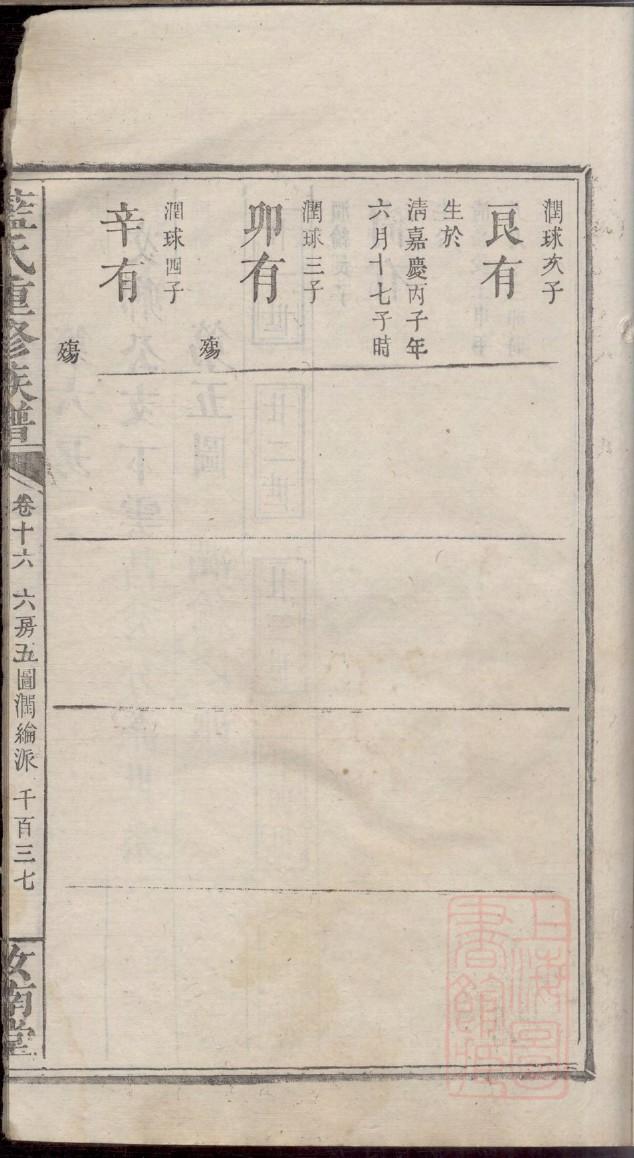 潤球次子
艮有
生於
淸嘉慶丙子年
六月十七子時
潤球三子
卯有
殤
潤球四子
辛有
殤
藍氏重修族譜
卷十六 六房五圖潤綸派 千百三七
汝南堂
上海圖書館藏